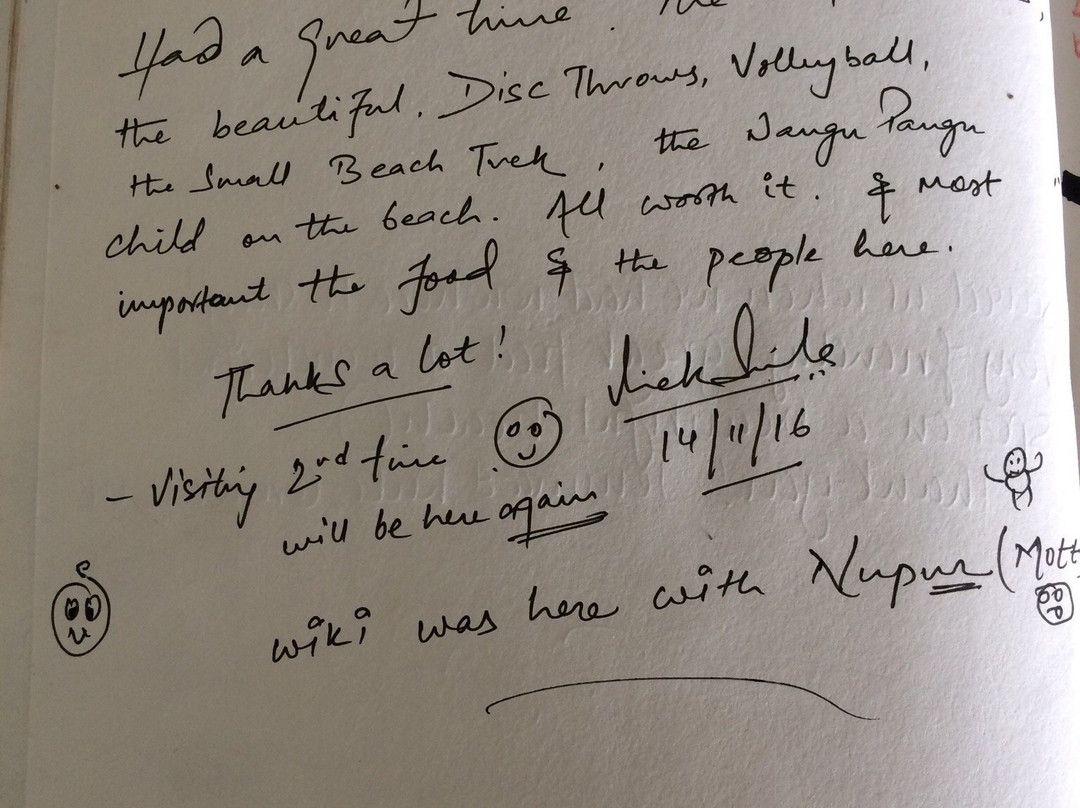 Had a great time. The
the beautiful. Disc Throws, Volleyball,
the Small Beach Trek, the Nangu Pangu
child on the beach. All worth it. & most
important the food & the people here.
Thanks a lot!
14/11/16
- Visiting 2nd time
will be here again
wiki was here with Nupur (Mott